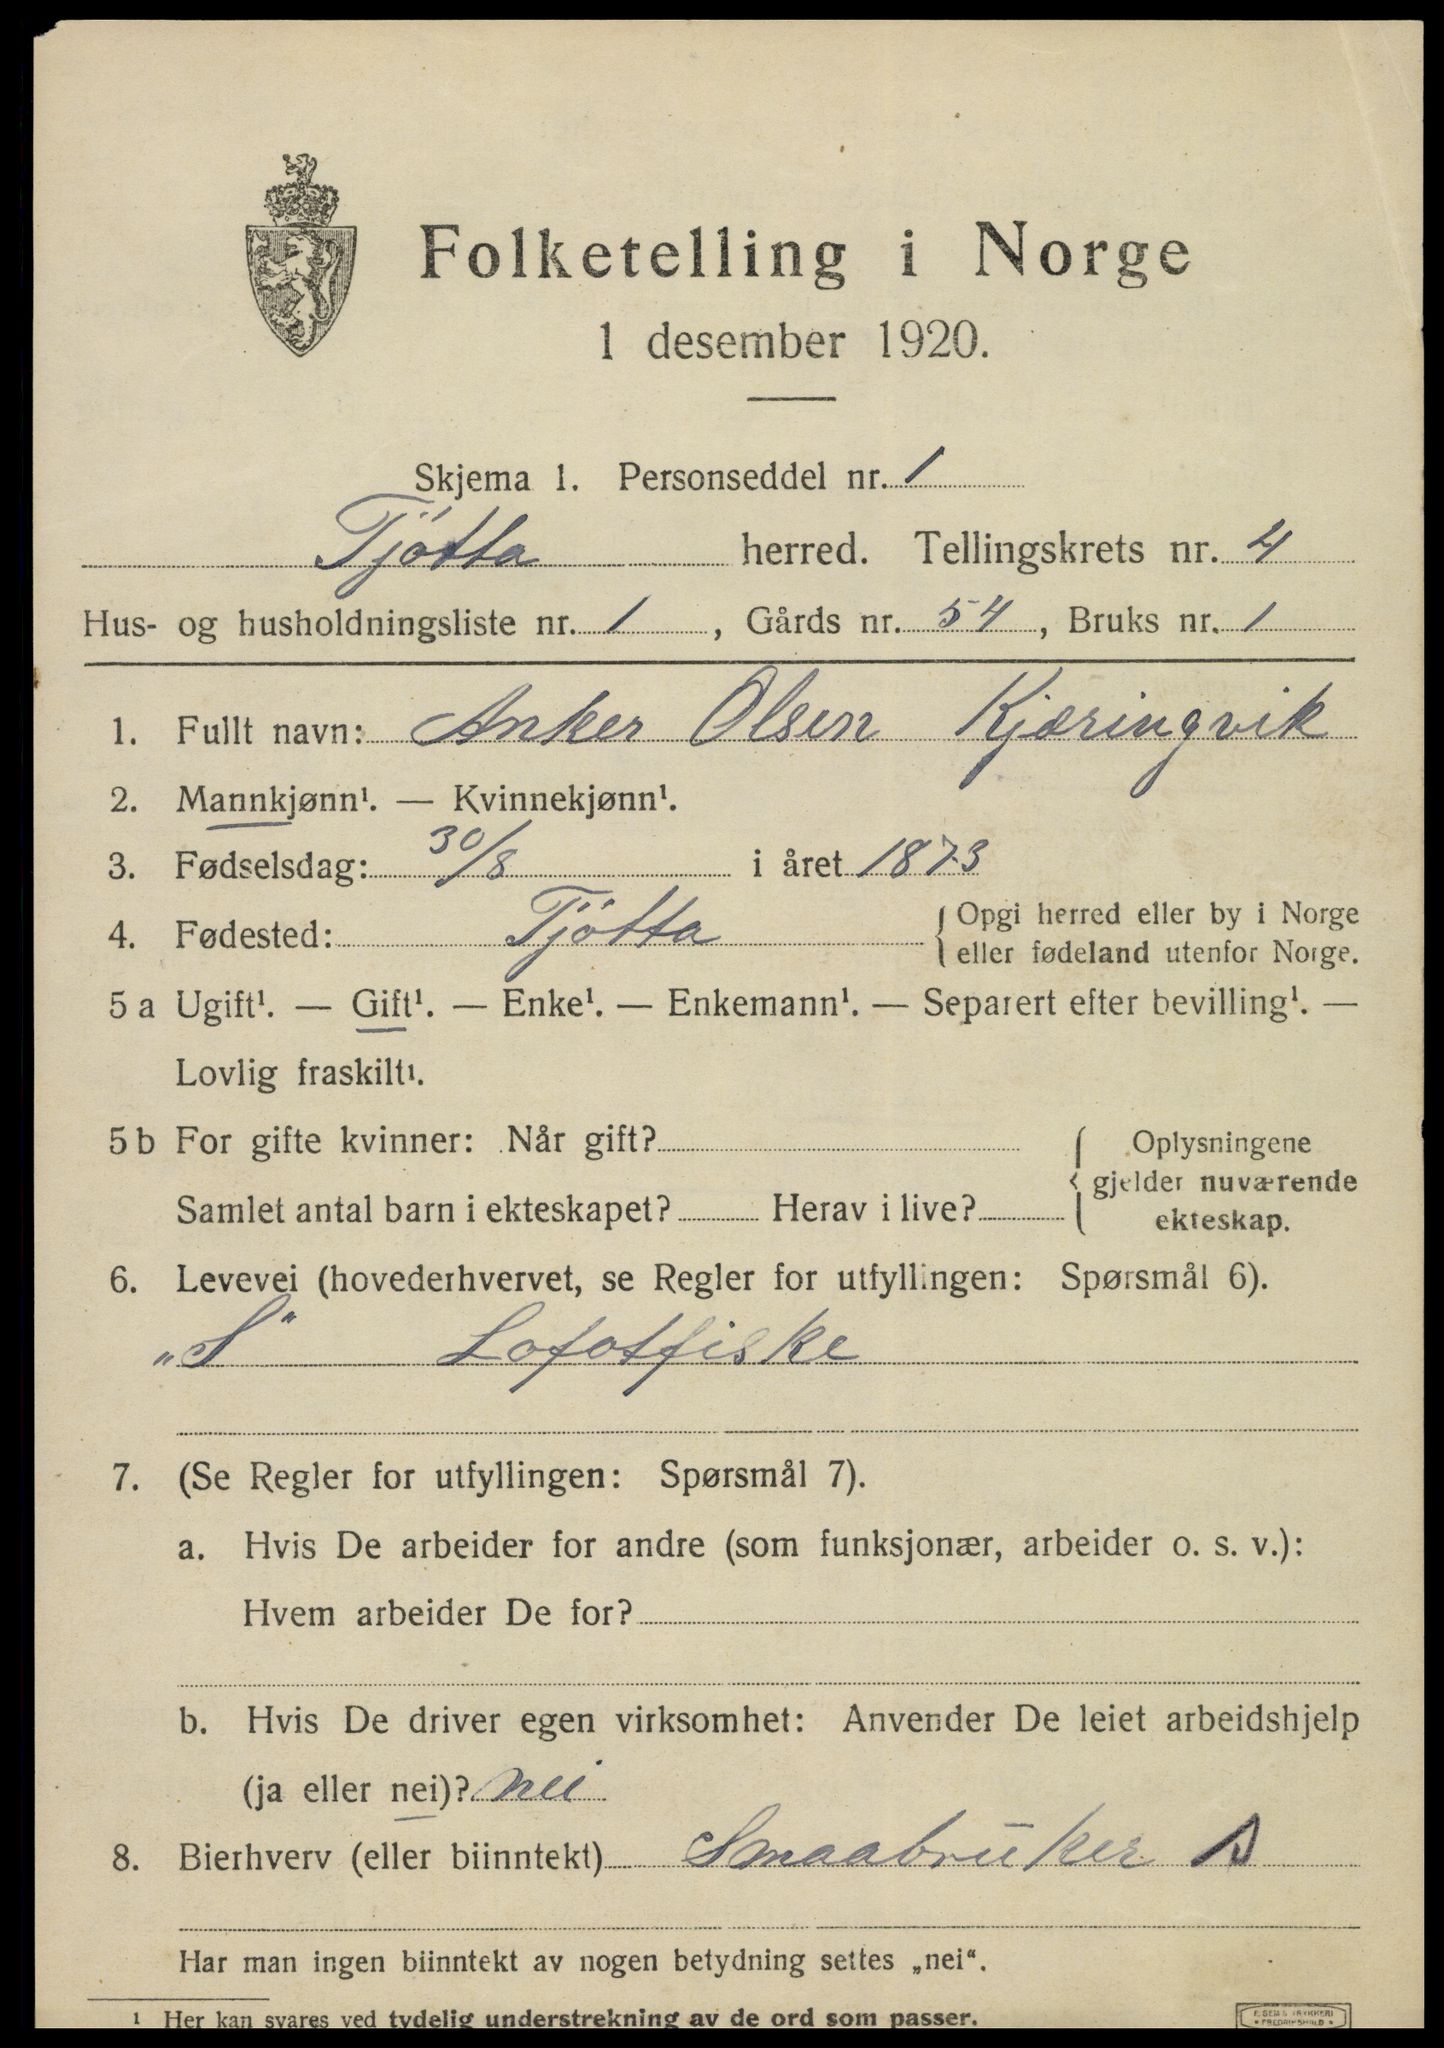 Folketelling i Norge
1 desember 1920.
Skjema 1. Personseddel nr. 1
Tjötta herred. Tellingskrets nr. 4
Hus- og husholdningsliste nr. 1, Gårds nr. 54, Bruks nr. 1
1. Fullt navn: Anker Olsen Kjæringvik
2. Mannkjønn¹. — Kvinnekjønn¹.
3. Fødselsdag: 30/8 i året 1873
4. Fødested: Tjötta { Opgi herred eller by i Norge
eller fødeland utenfor Norge.
5 a Ugift¹. — Gift¹. — Enke¹. — Enkemann¹. — Separert efter bevilling¹. —
Lovlig fraskilt¹.
5 b For gifte kvinner: Når gift? { Oplysningene
gjelder nuværende
Samlet antal barn i ekteskapet? Herav i live? ekteskap.
6. Levevei (hovederhvervet, se Regler for utfyllingen: Spørsmål 6).
„S" Lofotfiske
7. (Se Regler for utfyllingen: Spørsmål 7).
a. Hvis De arbeider for andre (som funksjonær, arbeider o. s. v.):
Hvem arbeider De for?
b. Hvis De driver egen virksomhet: Anvender De leiet arbeidshjelp
(ja eller nei)? nei
8. Bierhverv (eller biinntekt) Smaabrüker S
Har man ingen biinntekt av nogen betydning settes „nei“.
¹ Her kan svares ved tydelig understrekning av de ord som passer.
FREDRIKSHALD